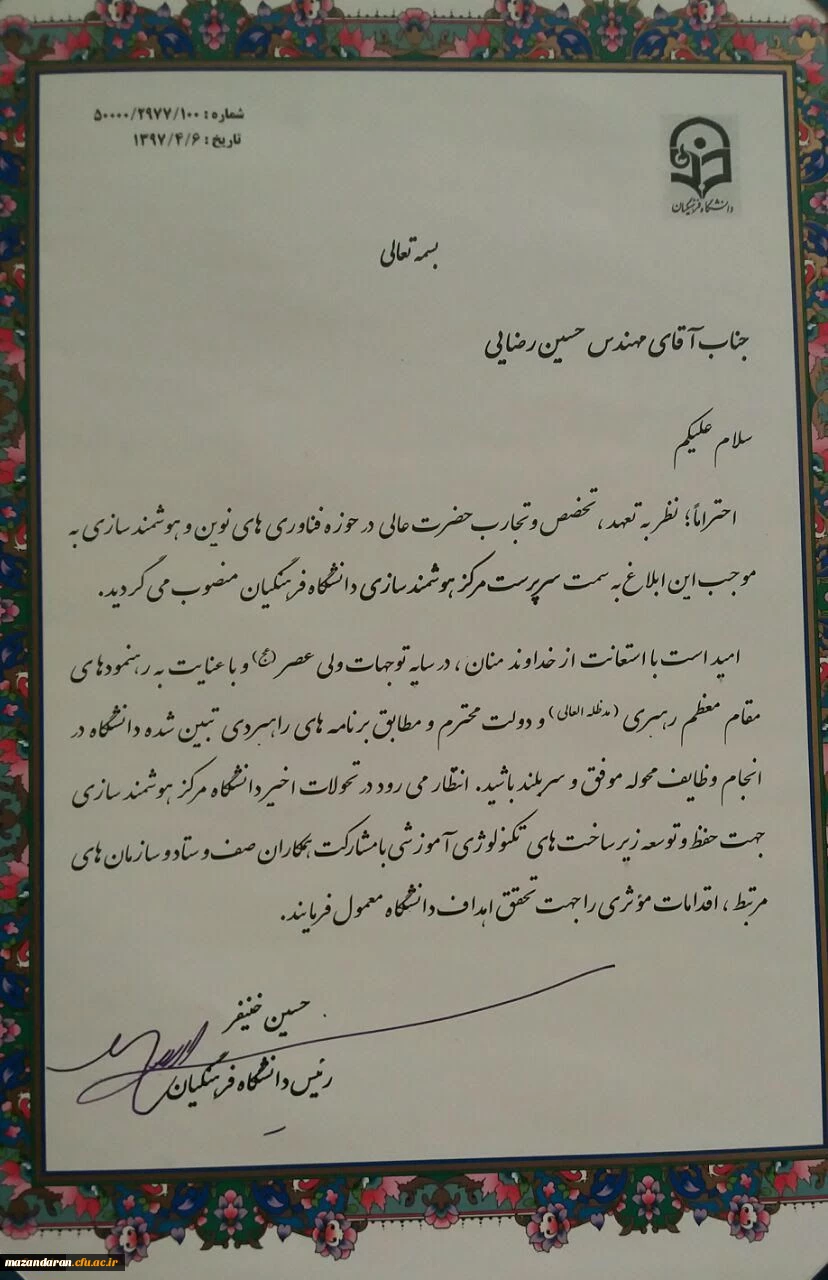 شماره : ۵۰۰۰۰/۲۹۷۷/۱۰۰
تاریخ : ۱۳۹۷/۴/۶
دانشگاه فرهنگیان
بسمه تعالی
جناب آقای مهندس حسین رضایی
سلام علیکم
احتراماً؛ نظر به تعهد ، تخصص و تجارب حضرت عالی در حوزه فناوری های نوین و هوشمند سازی به
موجب این ابلاغ به سمت سرپرست مرکز هوشمند سازی دانشگاه فرهنگیان منصوب می گردید.
امید است با استعانت از خداوند منان ، در سایه توجهات ولی عصر (عج) و با عنایت به رهنمودهای
مقام معظم رهبری (مدظله العالی) و دولت محترم و مطابق برنامه های راهبردی تبین شده دانشگاه در
انجام وظایف محوله موفق و سربلند باشید. انتظار می رود در تحولات اخیر دانشگاه مرکز هوشمند سازی
جهت حفظ و توسعه زیر ساخت های تکنولوژی آموزشی با مشارکت همکاران صف و ستاد و سازمان های
مرتبط ، اقدامات مؤثری را جهت تحقق اهداف دانشگاه معمول فرمایند.
حسین خنیفر
رئیس دانشگاه فرهنگیان
mazandaran.cfu.ac.ir